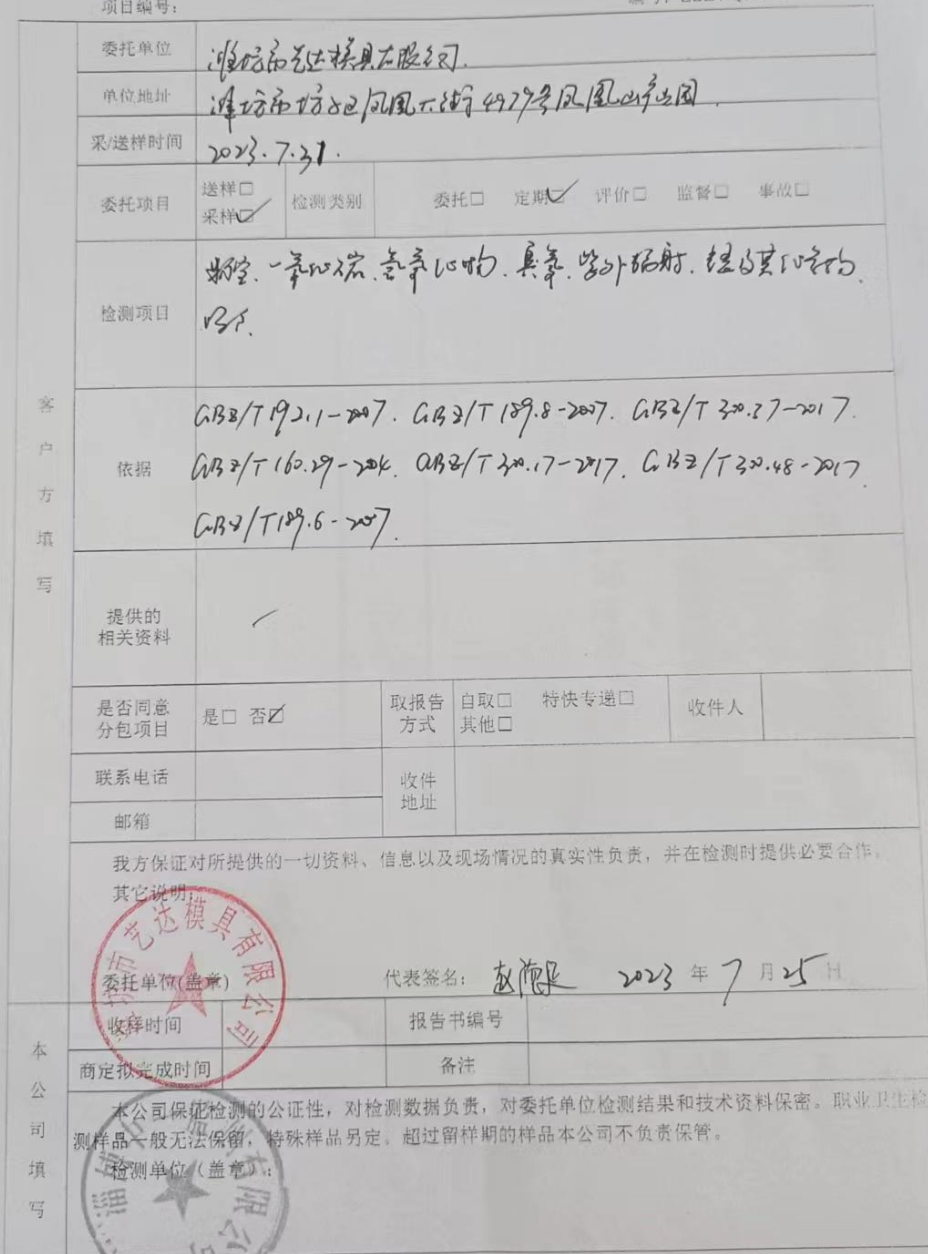 项目编号：
委托单位 潍坊市艺达模具有限公司.
单位地址 潍坊市坊子区凤凰大街4979号凤凰山产业园
采/送样时间 2023.7.31.
委托项目 送样□ 采样☑ 检测类别 委托□ 定期☑ 评价□ 监督□ 事故□
检测项目 一氧化碳、氮氧化物、臭氧、紫外辐射、锰及其化合物、
噪声.
客户方填写
依据 GBZ/T192.1-2007. GBZ/T189.8-2007. GBZ/T300.37-2017.
GBZ/T160.29-2004. GBZ/T300.17-2017. GBZ/T300.48-2017
GBZ/T189.6-2007.
提供的
相关资料
是否同意
分包项目 是□ 否☑ 取报告
方式 自取□ 特快专递□
其他□ 收件人
联系电话 收件
地址
邮箱
我方保证对所提供的一切资料、信息以及现场情况的真实性负责，并在检测时提供必要合作。
其它说明：
潍坊市艺达模具有限公司
委托单位(盖章) 代表签名： 2023 年 7 月 25 日
收样时间 报告书编号
商定拟完成时间 备注
本公司填写
本公司保证检测的公证性，对检测数据负责，对委托单位检测结果和技术资料保密。职业卫生检
测样品一般无法保留，特殊样品另定，超过留样期的样品本公司不负责保管。
检测单位（盖章）：